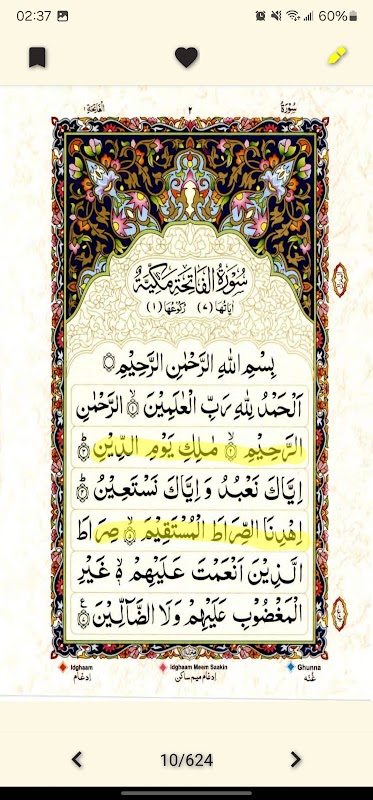 02:37 60%
الفاتحة ١ ٢ سُوْرَةُ
سُوْرَةُ الْفَاتِحَةِ مَكِّيَّةٌ
اٰيَاتُهَا (٧) رُكُوْعُهَا (١)
بِسْمِ اللّٰهِ الرَّحْمٰنِ الرَّحِيْمِ
اَلْحَمْدُ لِلّٰهِ رَبِّ الْعٰلَمِيْنَ ۙ﴿۱﴾ الرَّحْمٰنِ
الرَّحِيْمِ ۙ﴿۲﴾ مٰلِكِ يَوْمِ الدِّيْنِ ؕ﴿۳﴾
اِيَّاكَ نَعْبُدُ وَ اِيَّاكَ نَسْتَعِيْنُ ؕ﴿۴﴾
اِهْدِنَا الصِّرَاطَ الْمُسْتَقِيْمَ ۙ﴿۵﴾ صِرَاطَ
الَّذِيْنَ اَنْعَمْتَ عَلَيْهِمْ ۙ۬﴿۶﴾ غَيْرِ
الْمَغْضُوْبِ عَلَيْهِمْ وَلَا الضَّآلِّيْنَ ﴿۷﴾
Idghaam Idghaam Meem Saakin Ghunna
اِدْغَام اِدْغَام مِیْم سَاکِن غُنَّه
10/624